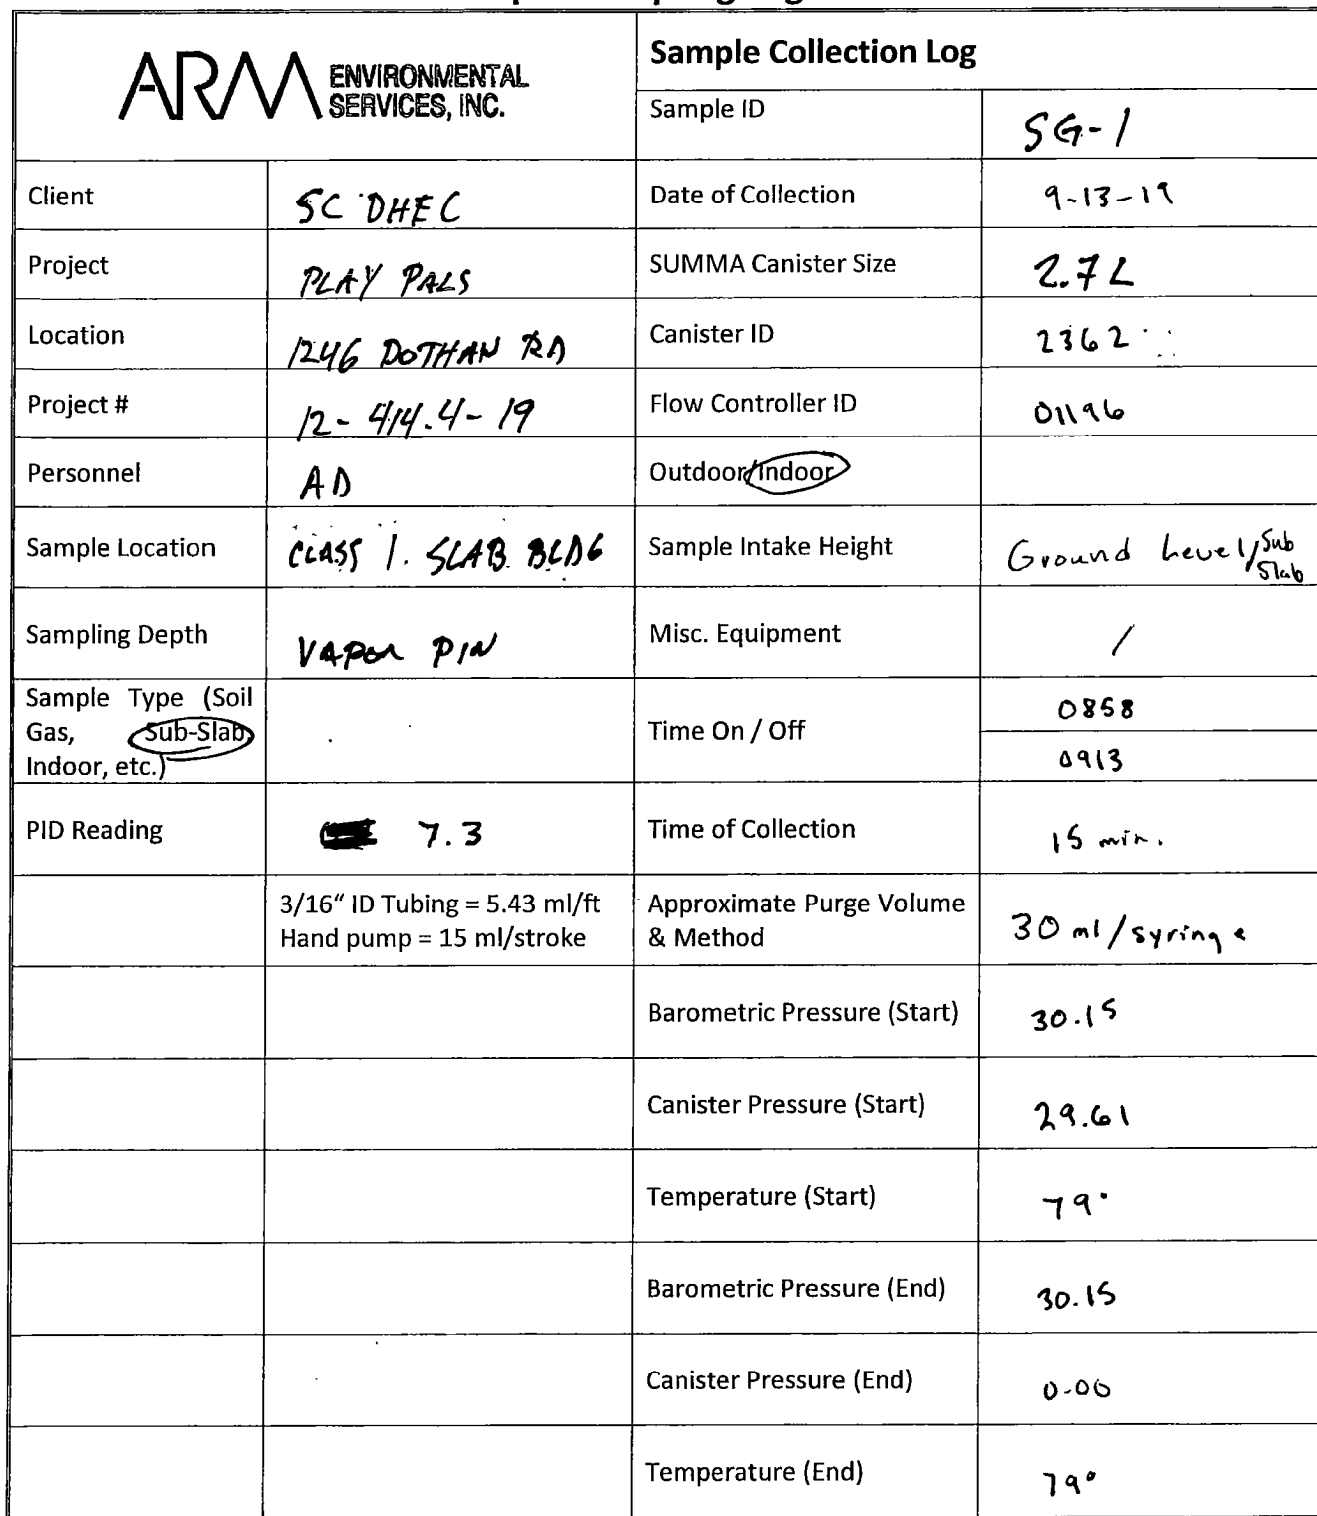 ARM ENVIRONMENTAL
SERVICES, INC.
Sample Collection Log
Sample ID
SG-1
Client
SC DHEC
Date of Collection
9-13-19
Project
PLAY PALS
SUMMA Canister Size
2.7 L
Location
1246 DOTHAN RD
Canister ID
2362
Project #
12-414.4-19
Flow Controller ID
01196
Personnel
AD
Outdoor/Indoor
Sample Location
CLASS 1. SLAB BLDG
Sample Intake Height
Ground Level/Sub
Slab
Sampling Depth
VAPOR PIN
Misc. Equipment
/
Sample Type (Soil
Gas, Sub-Slab,
Indoor, etc.)
Time On / Off
0858
0913
PID Reading
7.3
Time of Collection
15 min.
3/16" ID Tubing = 5.43 ml/ft
Hand pump = 15 ml/stroke
Approximate Purge Volume
& Method
30 ml/syringe
Barometric Pressure (Start)
30.15
Canister Pressure (Start)
29.61
Temperature (Start)
79°
Barometric Pressure (End)
30.15
Canister Pressure (End)
0.00
Temperature (End)
79°